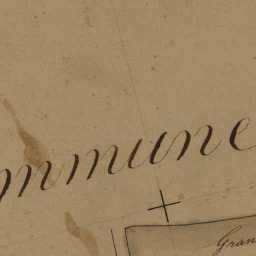 mmune
Gran